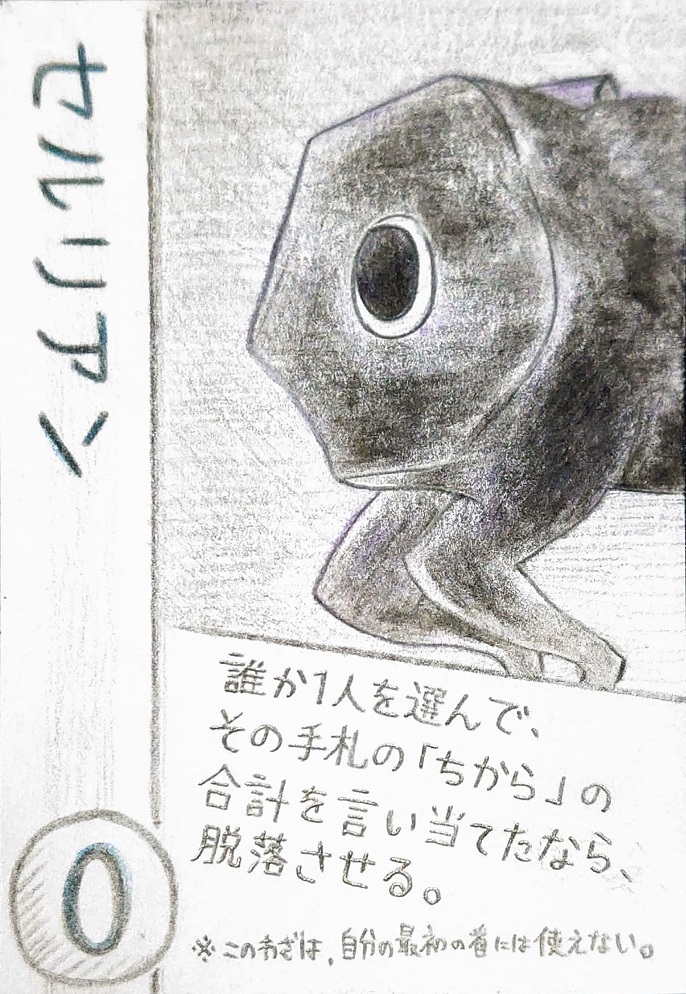 セルリアン
誰か1人を選んで、
その手札の「ちから」の
合計を言い当てたなら、
脱落させる。
※このわざは、自分の最初の番には使えない。
0